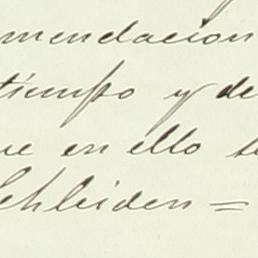 mendacion
tiempo y de
ue en ello te
Schleiden =